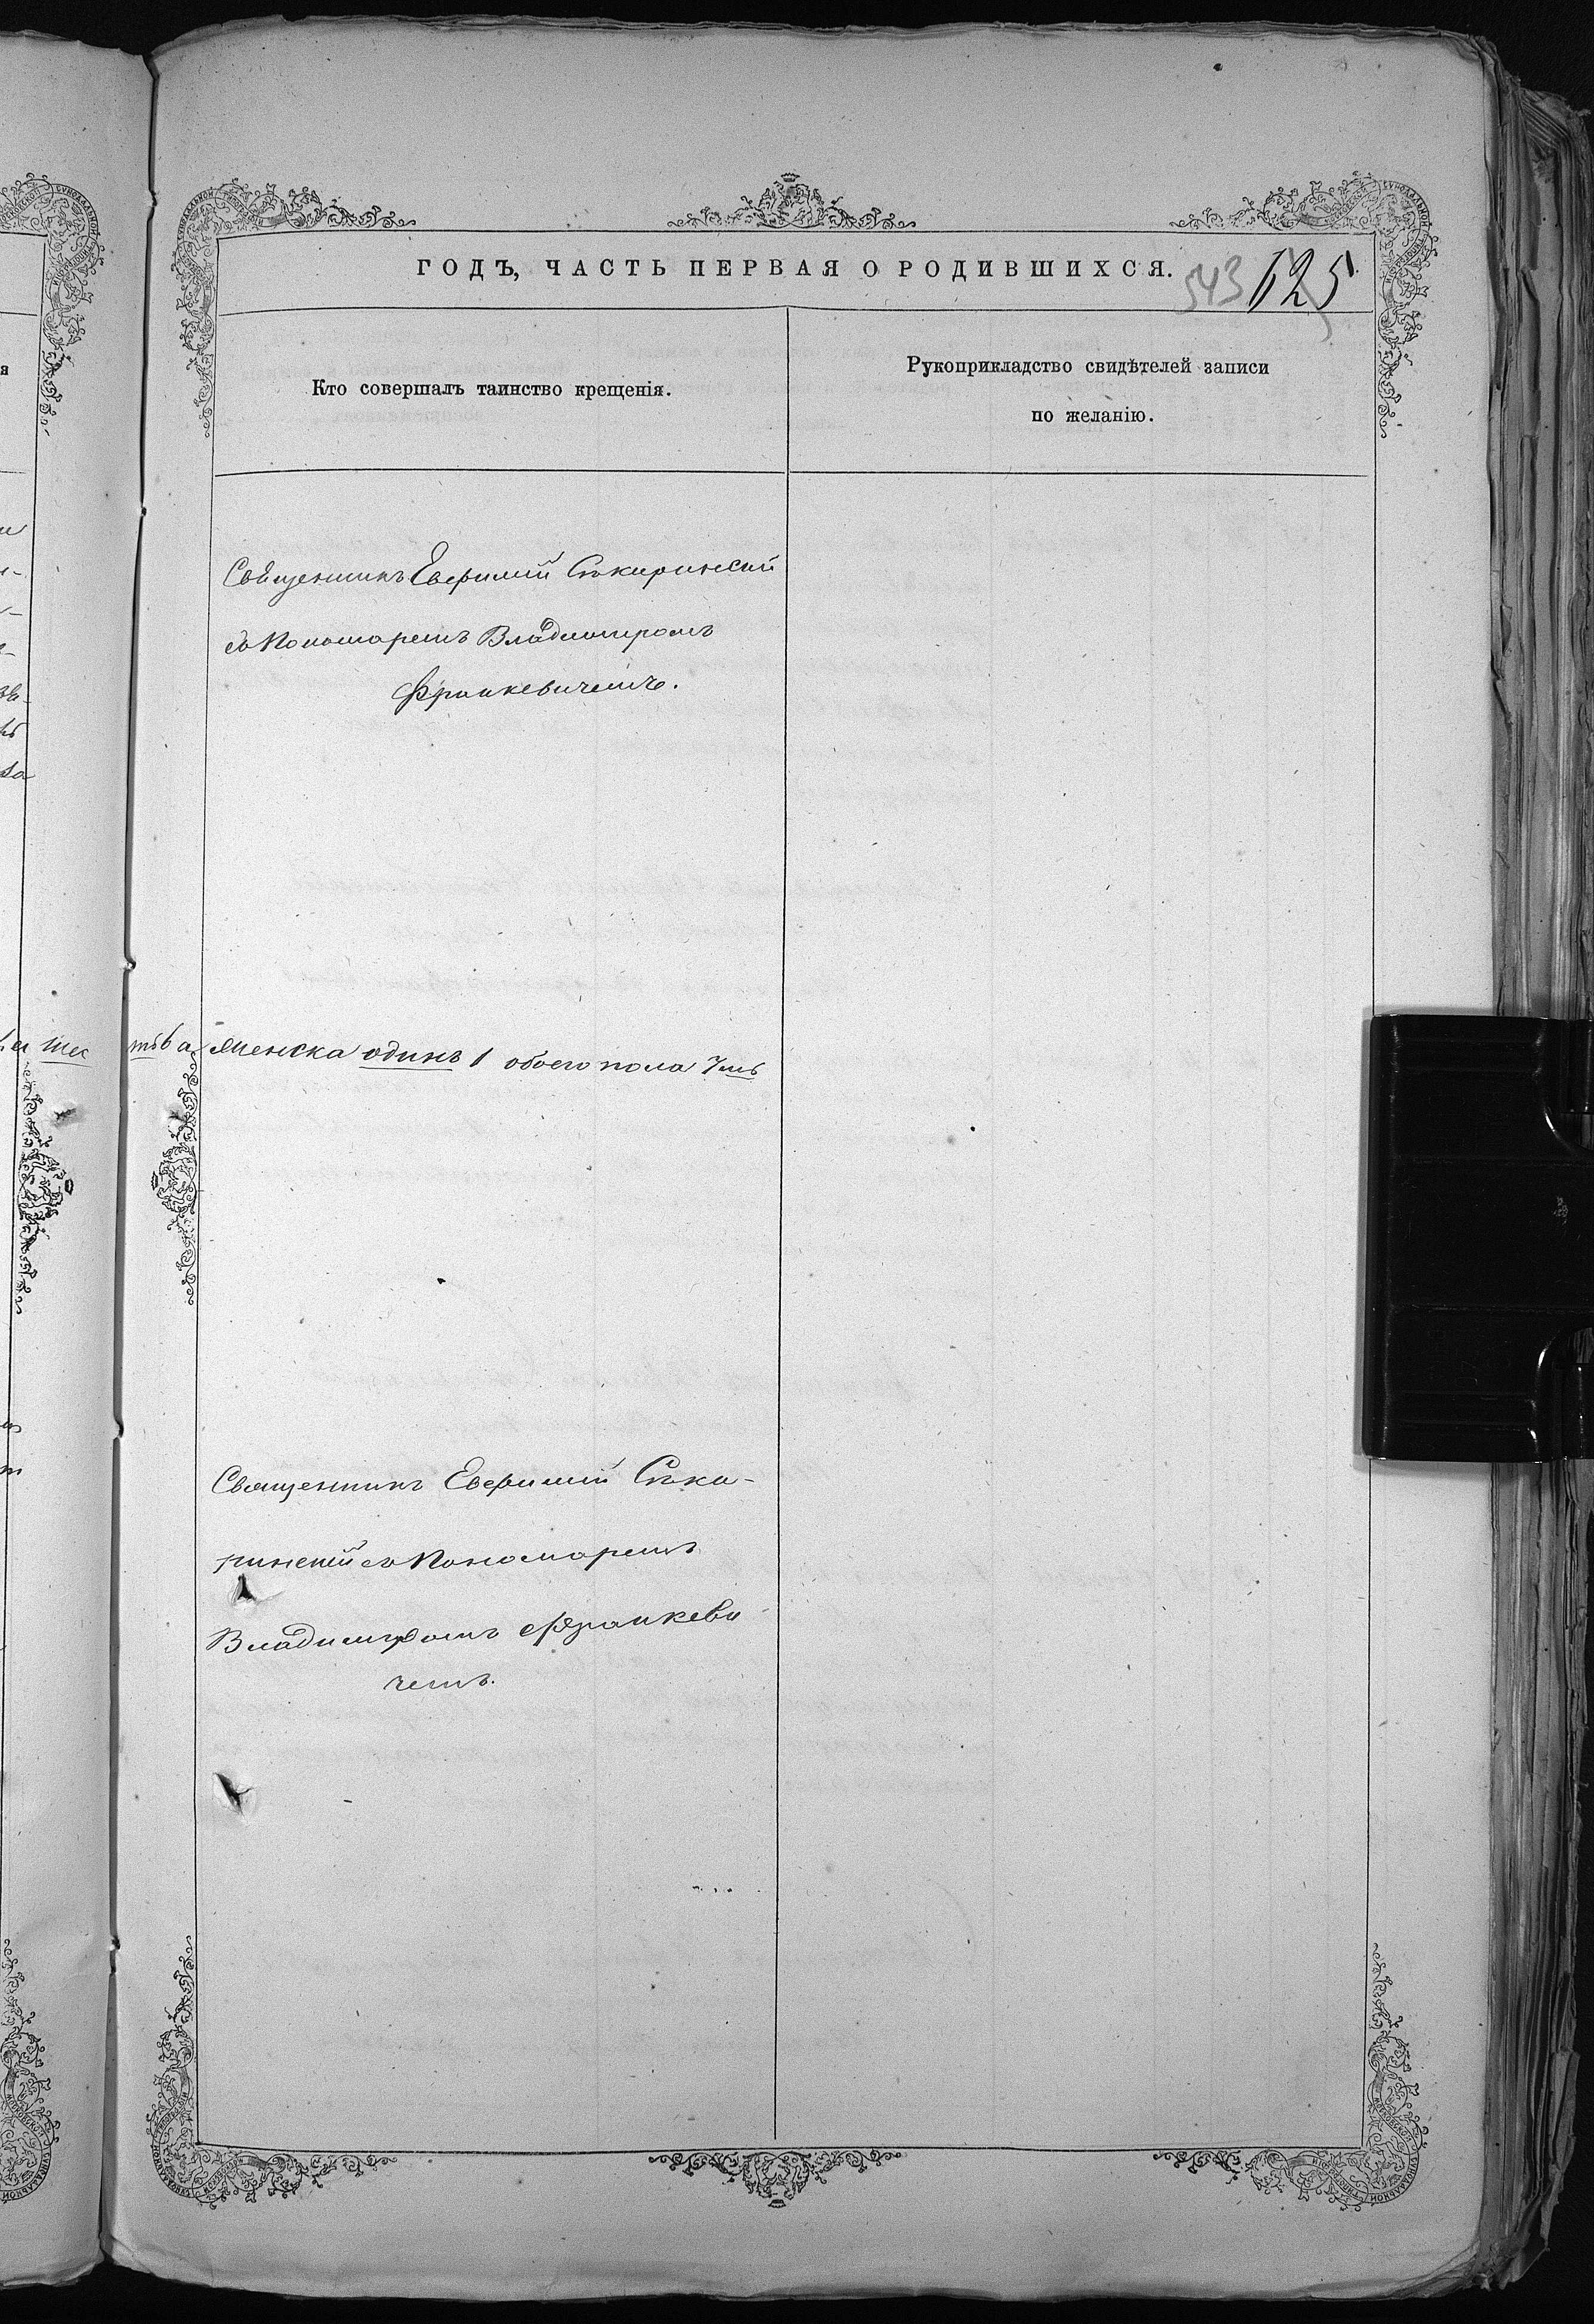 ГОДЪ, ЧАСТЬ ПЕРВАЯ О РОДИВШИХСЯ.
543 125
Кто совершалъ таинство крещенія.
Рукоприкладство свидѣтелей записи
по желанію.
Священникъ Евфимій Сѣкиринскій
съ Пономаремъ Владиміромъ
Франкевичемъ.
женска одинъ 1 обоего пола 7мь
Священникъ Евфимій Сѣки-
ринскій съ Пономаремъ
Владиміромъ Франкеви
чемъ.